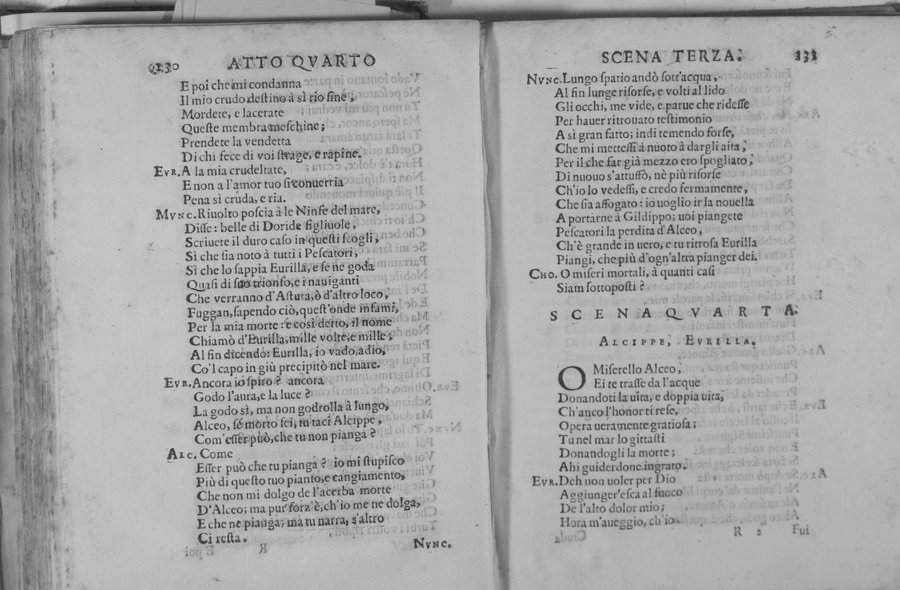 230 ATTO QVARTO
E poi che mi condanna
Il mio crudo destino à sì rio fine,
Mordete, e lacerate
Queste membra meschine;
Prendete la vendetta
Di chi fece di voi strage, e rapine.
EVR. A la mia crudeltate,
E non a l'amor tuo si conuerria
Pena sì cruda, e ria.
NVNC. Riuolto poscia à le Ninfe del mare,
Disse: belle di Doride figliuole,
Scriuete il duro caso in questi scogli,
Sì che sia noto à tutti i Pescatori,
Sì che lo sappia Eurilla, e se ne goda
Quasi di suo trionfo, e i nauiganti
Che verranno d'Astura, ò d'altro loco,
Fuggan, sapendo ciò, quest'onde infami,
Per la mia morte: e così detto, il nome
Chiamò d'Eurilla, mille volte, e mille;
Al fin dicendo: Eurilla, io vado, adio,
Co'l capo in giù precipitò nel mare.
EVR. Ancora io spiro? ancora
Godo l'aura, e la luce?
La godo sì, ma non godrolla à lungo,
Alceo, se morto sei, tu taci Alcippe,
Com'esser può, che tu non pianga?
ALC. Come
Esser può che tu pianga? io mi stupisco
Più di questo tuo pianto, e cangiamento,
Che non mi dolgo de l'acerba morte
D'Alceo; ma pur forz'è, ch'io me ne dolga,
E che ne pianga; ma tu narra, s'altro
Ci resta.
R NVNC.
SCENA TERZA. 131
NVNC. Lungo spatio andò sott'acqua,
Al fin lunge risorse, e volti al lido
Gli occhi, me vide, e parue che ridesse
Per hauer ritrouato testimonio
A sì gran fatto; indi temendo forse,
Che mi mettessi à nuoto à dargli aita,
Per il che far già mezzo ero spogliato,
Di nuouo s'attuffò, nè più risorse
Ch'io lo vedessi, e credo fermamente,
Che sia affogato: io uoglio ir la nouella
A portarne à Gildippo; uoi piangete
Pescatori la perdita d'Alceo,
Ch'è grande in uero, e tu ritrosa Eurilla
Piangi, che più d'ogn'altra pianger dei.
CHO. O miseri mortali, à quanti casi
Siam sottoposti?
SCENA QVARTA.
ALCIPPE, EVRILLA.
O Miserello Alceo,
Ei te trasse da l'acque
Donandoti la uita, e doppia uita,
Ch'anco l'honor ti rese,
Opera ueramente gratiosa;
Tu nel mar lo gittasti
Donandogli la morte;
Ahi guiderdone ingrato.
EVR. Deh non uoler per Dio
Aggiunger'esca al fuoco
De l'alto dolor mio;
Hora m'aueggio, ch'io
R 2 Fui